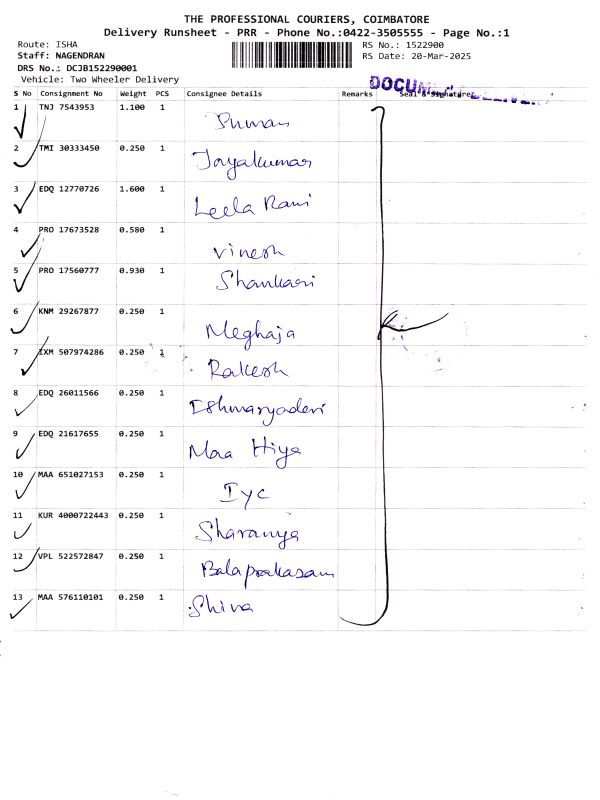 THE PROFESSIONAL COURIERS, COIMBATORE
Delivery Runsheet - PRR - Phone No.:0422-3505555 - Page No.:1
Route: ISHA RS No.: 1522900
Staff: NAGENDRAN RS Date: 20-Mar-2025
DRS No.: DCJB152290001
Vehicle: Two Wheeler Delivery
S No Consignment No Weight PCS Consignee Details Remarks Seal & Signature
1 TNJ 7543953 1.100 1 Suman
2 TMI 30333450 0.250 1 Jayakumar
3 EDQ 12770726 1.600 1 Leela Rani
4 PRO 17673528 0.580 1 Vinesh
5 PRO 17560777 0.930 1 Shankari
6 KNM 29267877 0.250 1 Meghaja
7 IXM 507974286 0.250 1 Rakesh
8 EDQ 26011566 0.250 1
9 EDQ 21617655 0.250 1 Maa Hiya
10 MAA 651027153 0.250 1 Iyc
11 KUR 4000722443 0.250 1 Sharanya
12 VPL 522572847 0.250 1 Balaprakasam
13 MAA 576110101 0.250 1 Shiva